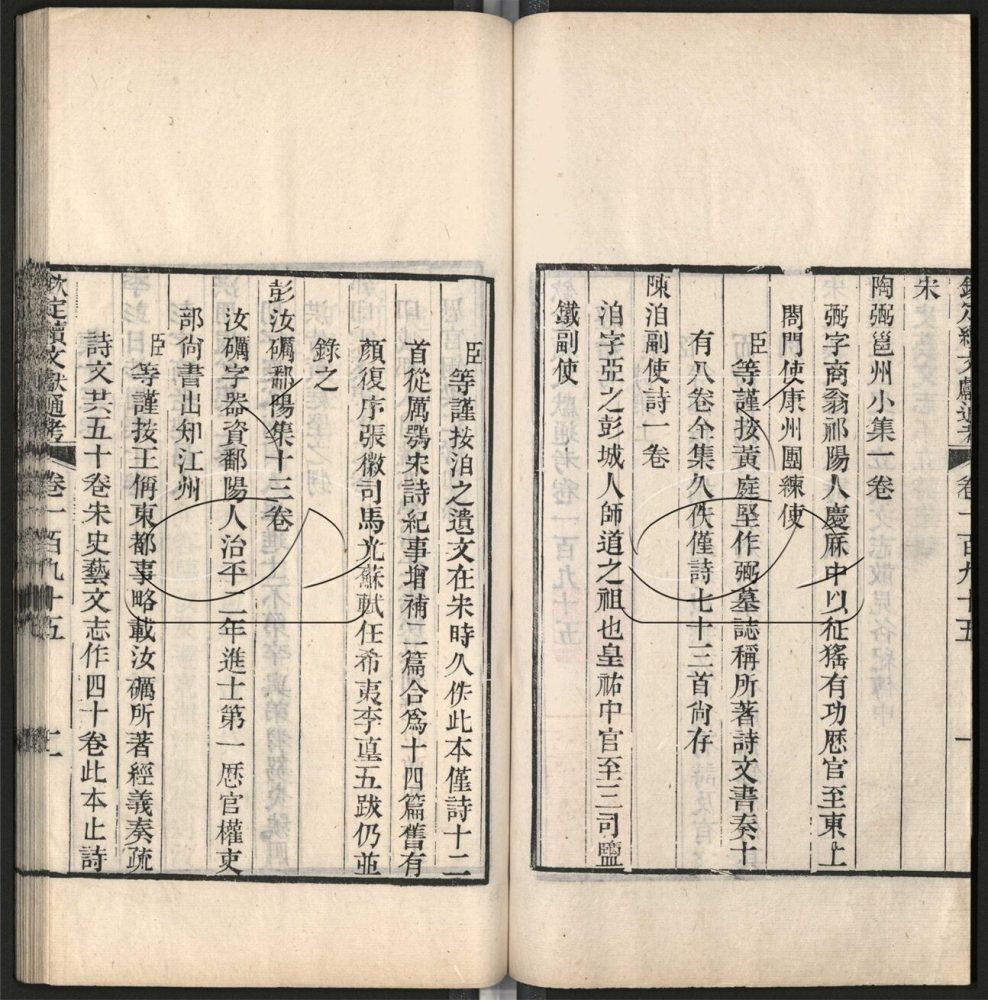 欽定續文獻通考 卷一百九十五 一
宋
陶弼邕州小集一卷
弼字商翁祁陽人慶厤中以征猺有功厯官至東上
閤門使康州團練使
臣等謹按黃庭堅作弼墓誌稱所著詩文書奏十
有八卷全集久佚僅詩七十三首尚存
陳洎副使詩一卷
洎字亞之彭城人師道之祖也皇祐中官至三司鹽
鐵副使
臣等謹按洎之遺文在宋時久佚此本僅詩十二
首從厲鶚宋詩紀事增補二篇合爲十四篇舊有
顏復序張徽司馬光蘇軾任希夷李𡌴五跋仍並
錄之
彭汝礪鄱陽集十三卷
汝礪字器資鄱陽人治平二年進士第一厯官權吏
部尚書出知江州
臣等謹按王偁東都事略載汝礪所著經義奏疏
詩文共五十卷宋史藝文志作四十卷此本止詩
欽定續文獻通考 卷一百九十五 二